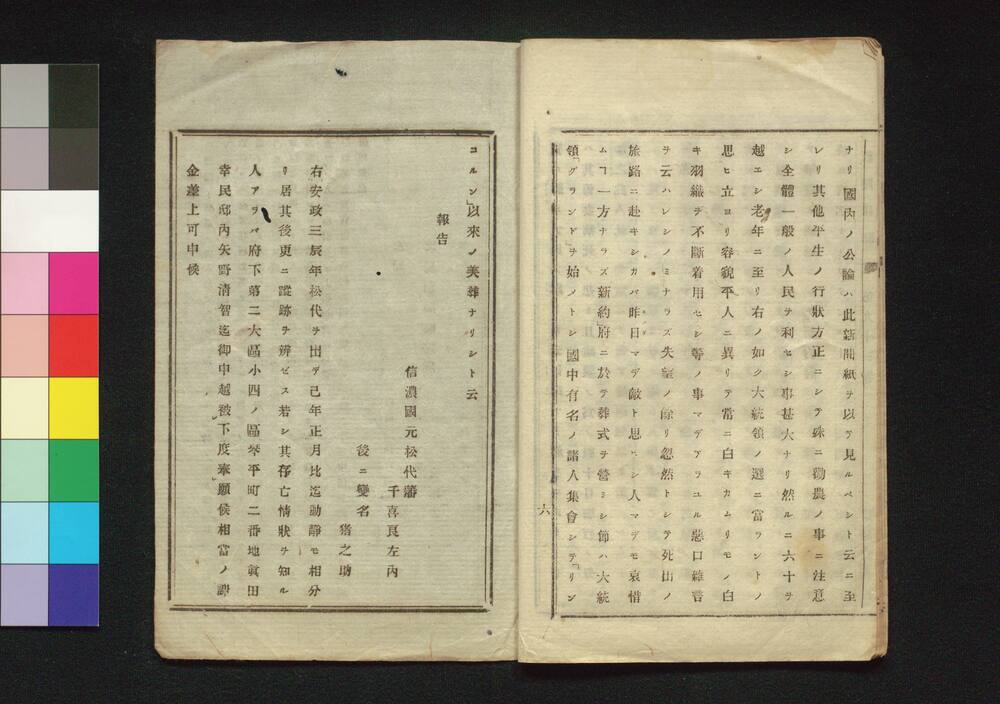 ナリ國内ノ公論ハ此新聞紙ヲ以テ見ルベシト云ニ至
レリ其他平生ノ行狀方正ニシテ殊ニ勸農ノ事ニ注意
シ全體一般ノ人民ヲ利セシ事甚大ナリ然ルニ六十ヲ
越エシ老年ニ至リ右ノ如ク大統領ノ選ニ當ラントノ
思ヒ立ヨリ容貌平人ニ異リテ常ニ白キカムリモノ白
キ羽織ヲ不斷着用セシ等ノ事マデアラユル惡口雜言
ヲ云ハレシノミナラズ失望ノ餘リ忽然トシテ死出ノ
旅路ニ赴キシカバ昨日マデ敵ト思ヒシ人マデモ哀惜
ムヿ一方ナラズ新約府ニ於テ葬式ヲ營ミシ節ハ大統
領「グランド」ヲ始メトシ國中有名ノ諸人集會シテ「リン
六
コルン」以來ノ美葬ナリシト云
報告
信濃國元松代藩
千喜良左内
後ニ變名
猪之助
右安政三辰年松代ヲ出デ己年正月比迄動靜モ相分
リ居其後更ニ蹤跡ヲ辨ゼス若シ其存亡情狀ヲ知ル
人アラバ府下第二大區小四ノ區琴平町二番地眞田
幸民邸内矢野清智迄御申越被下度奉願候相當ノ謝
金差上可申候